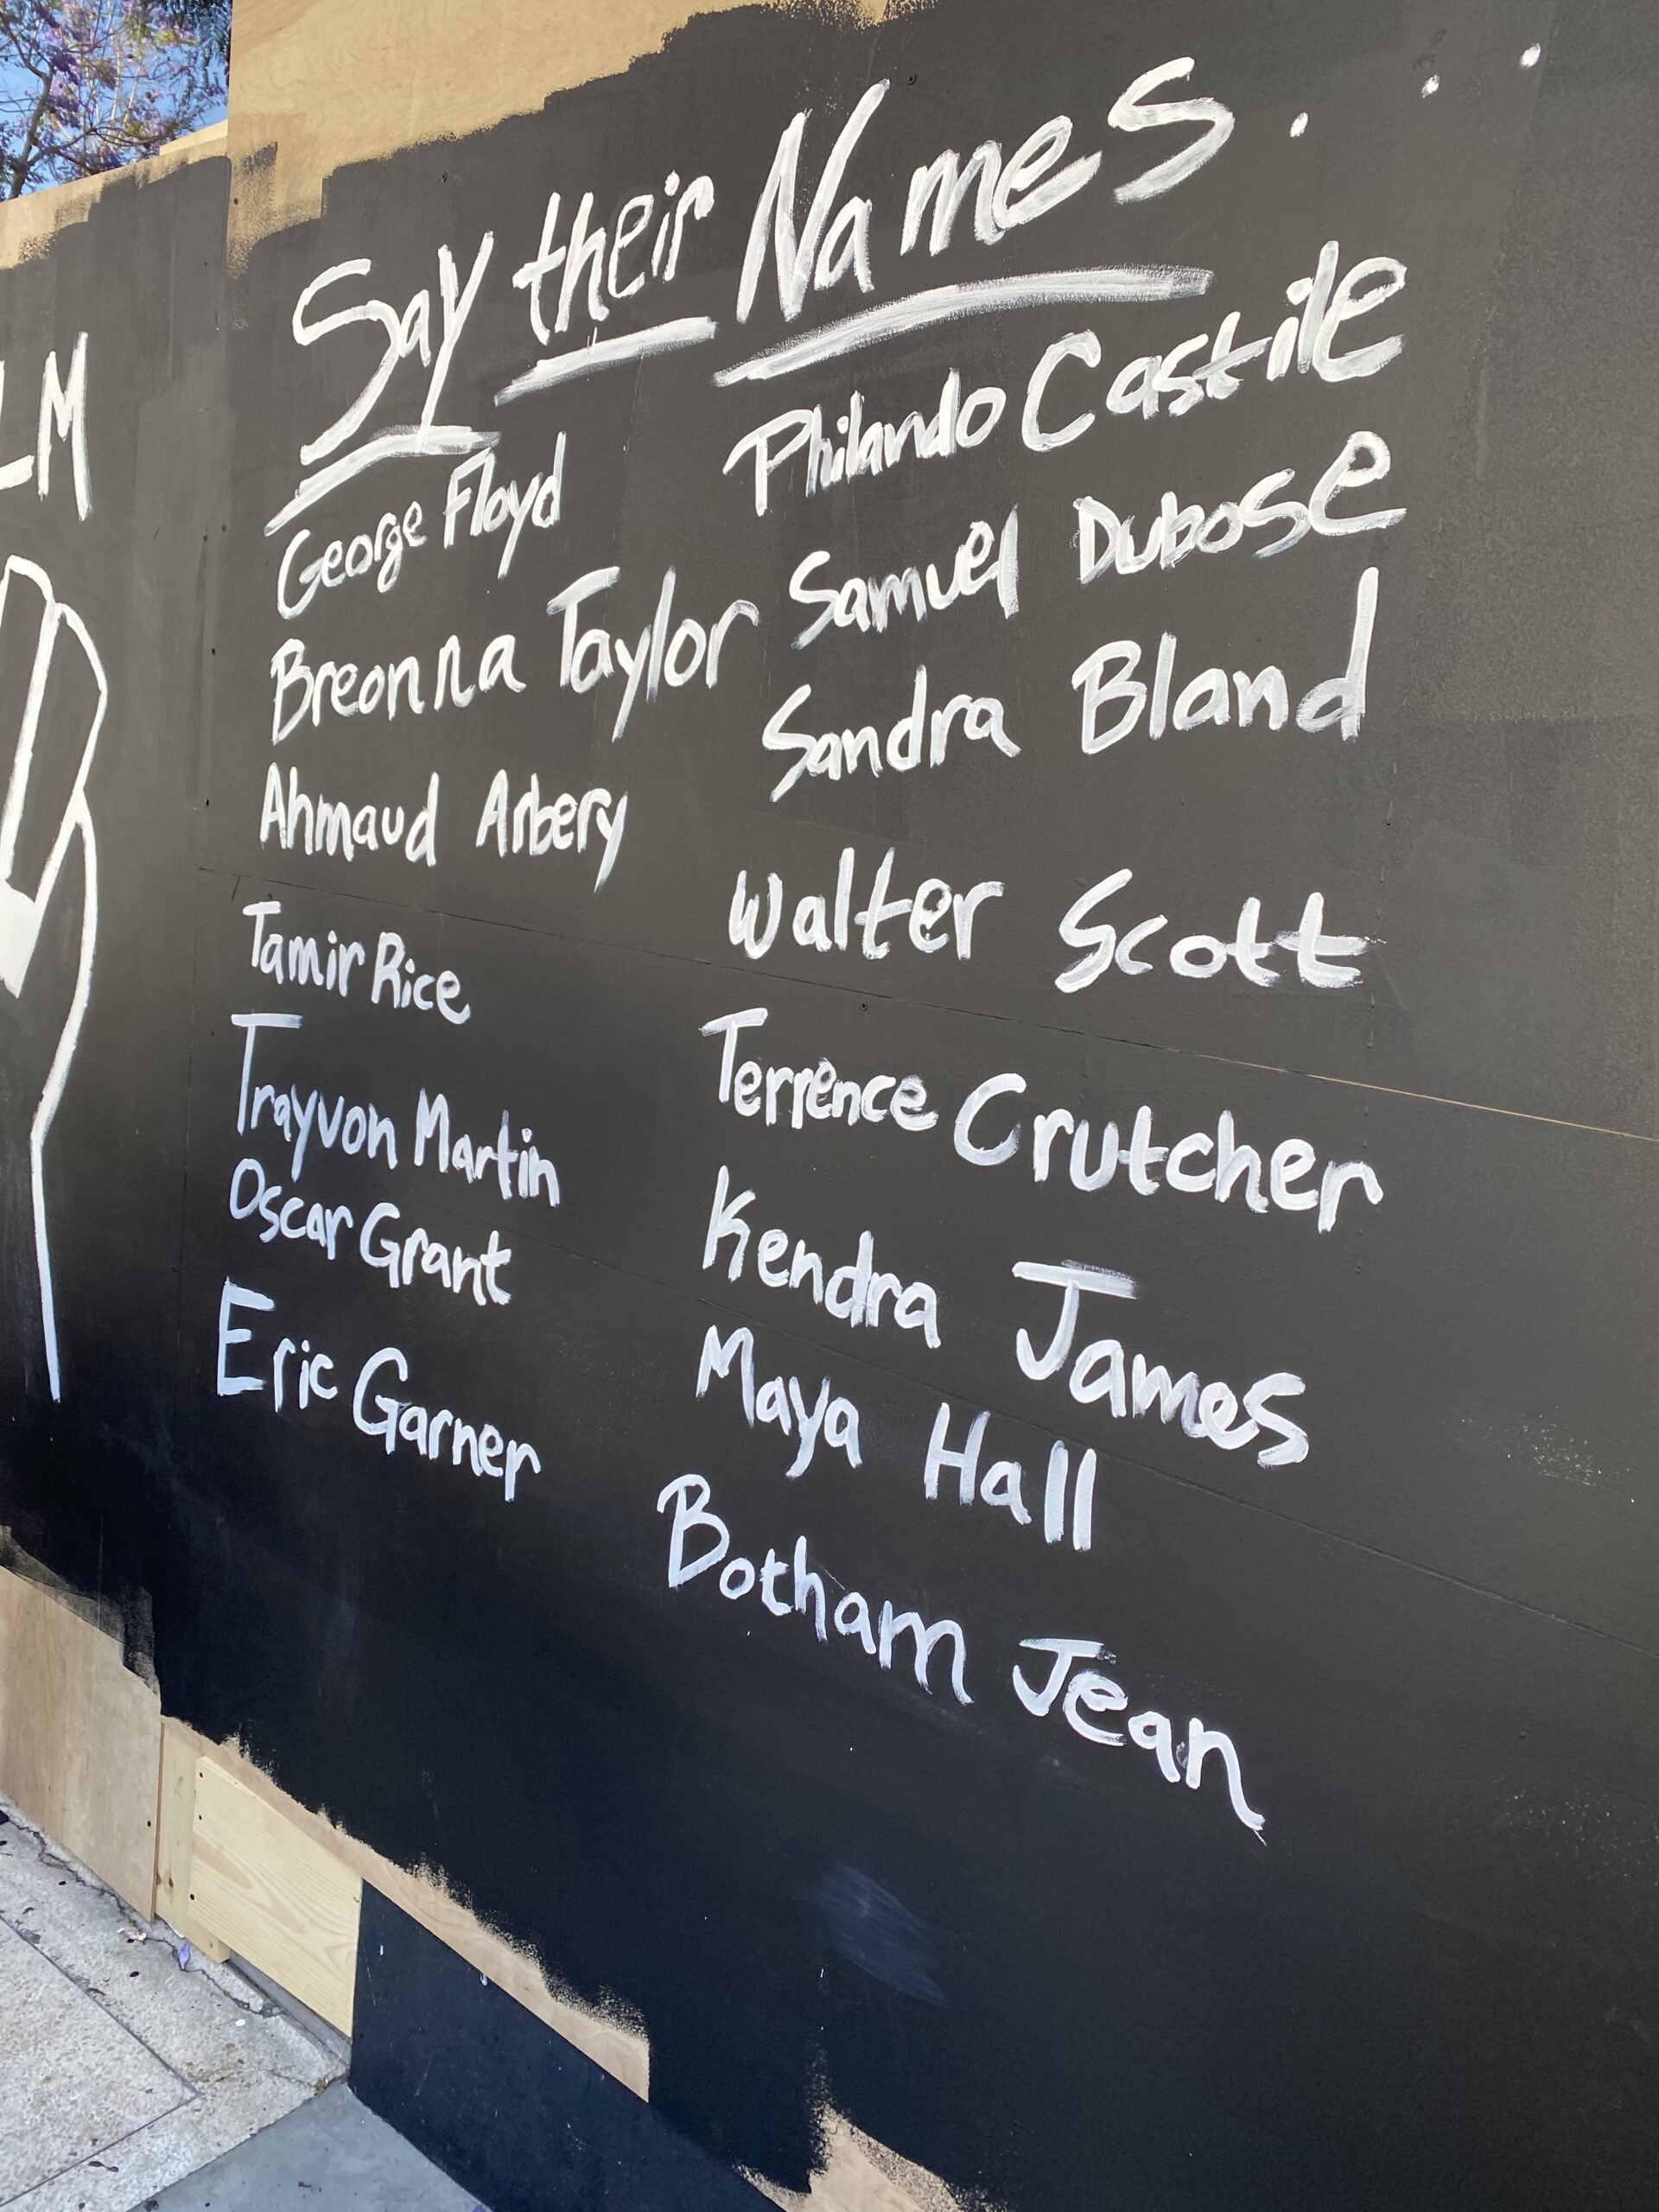 LM
Say their Names...
George Floyd
Breonna Taylor
Ahmaud Arbery
Tamir Rice
Trayvon Martin
Oscar Grant
Eric Garner
Philando Castile
Samuel Dubose
Sandra Bland
Walter Scott
Terrence Crutcher
Kendra James
Maya Hall
Botham Jean